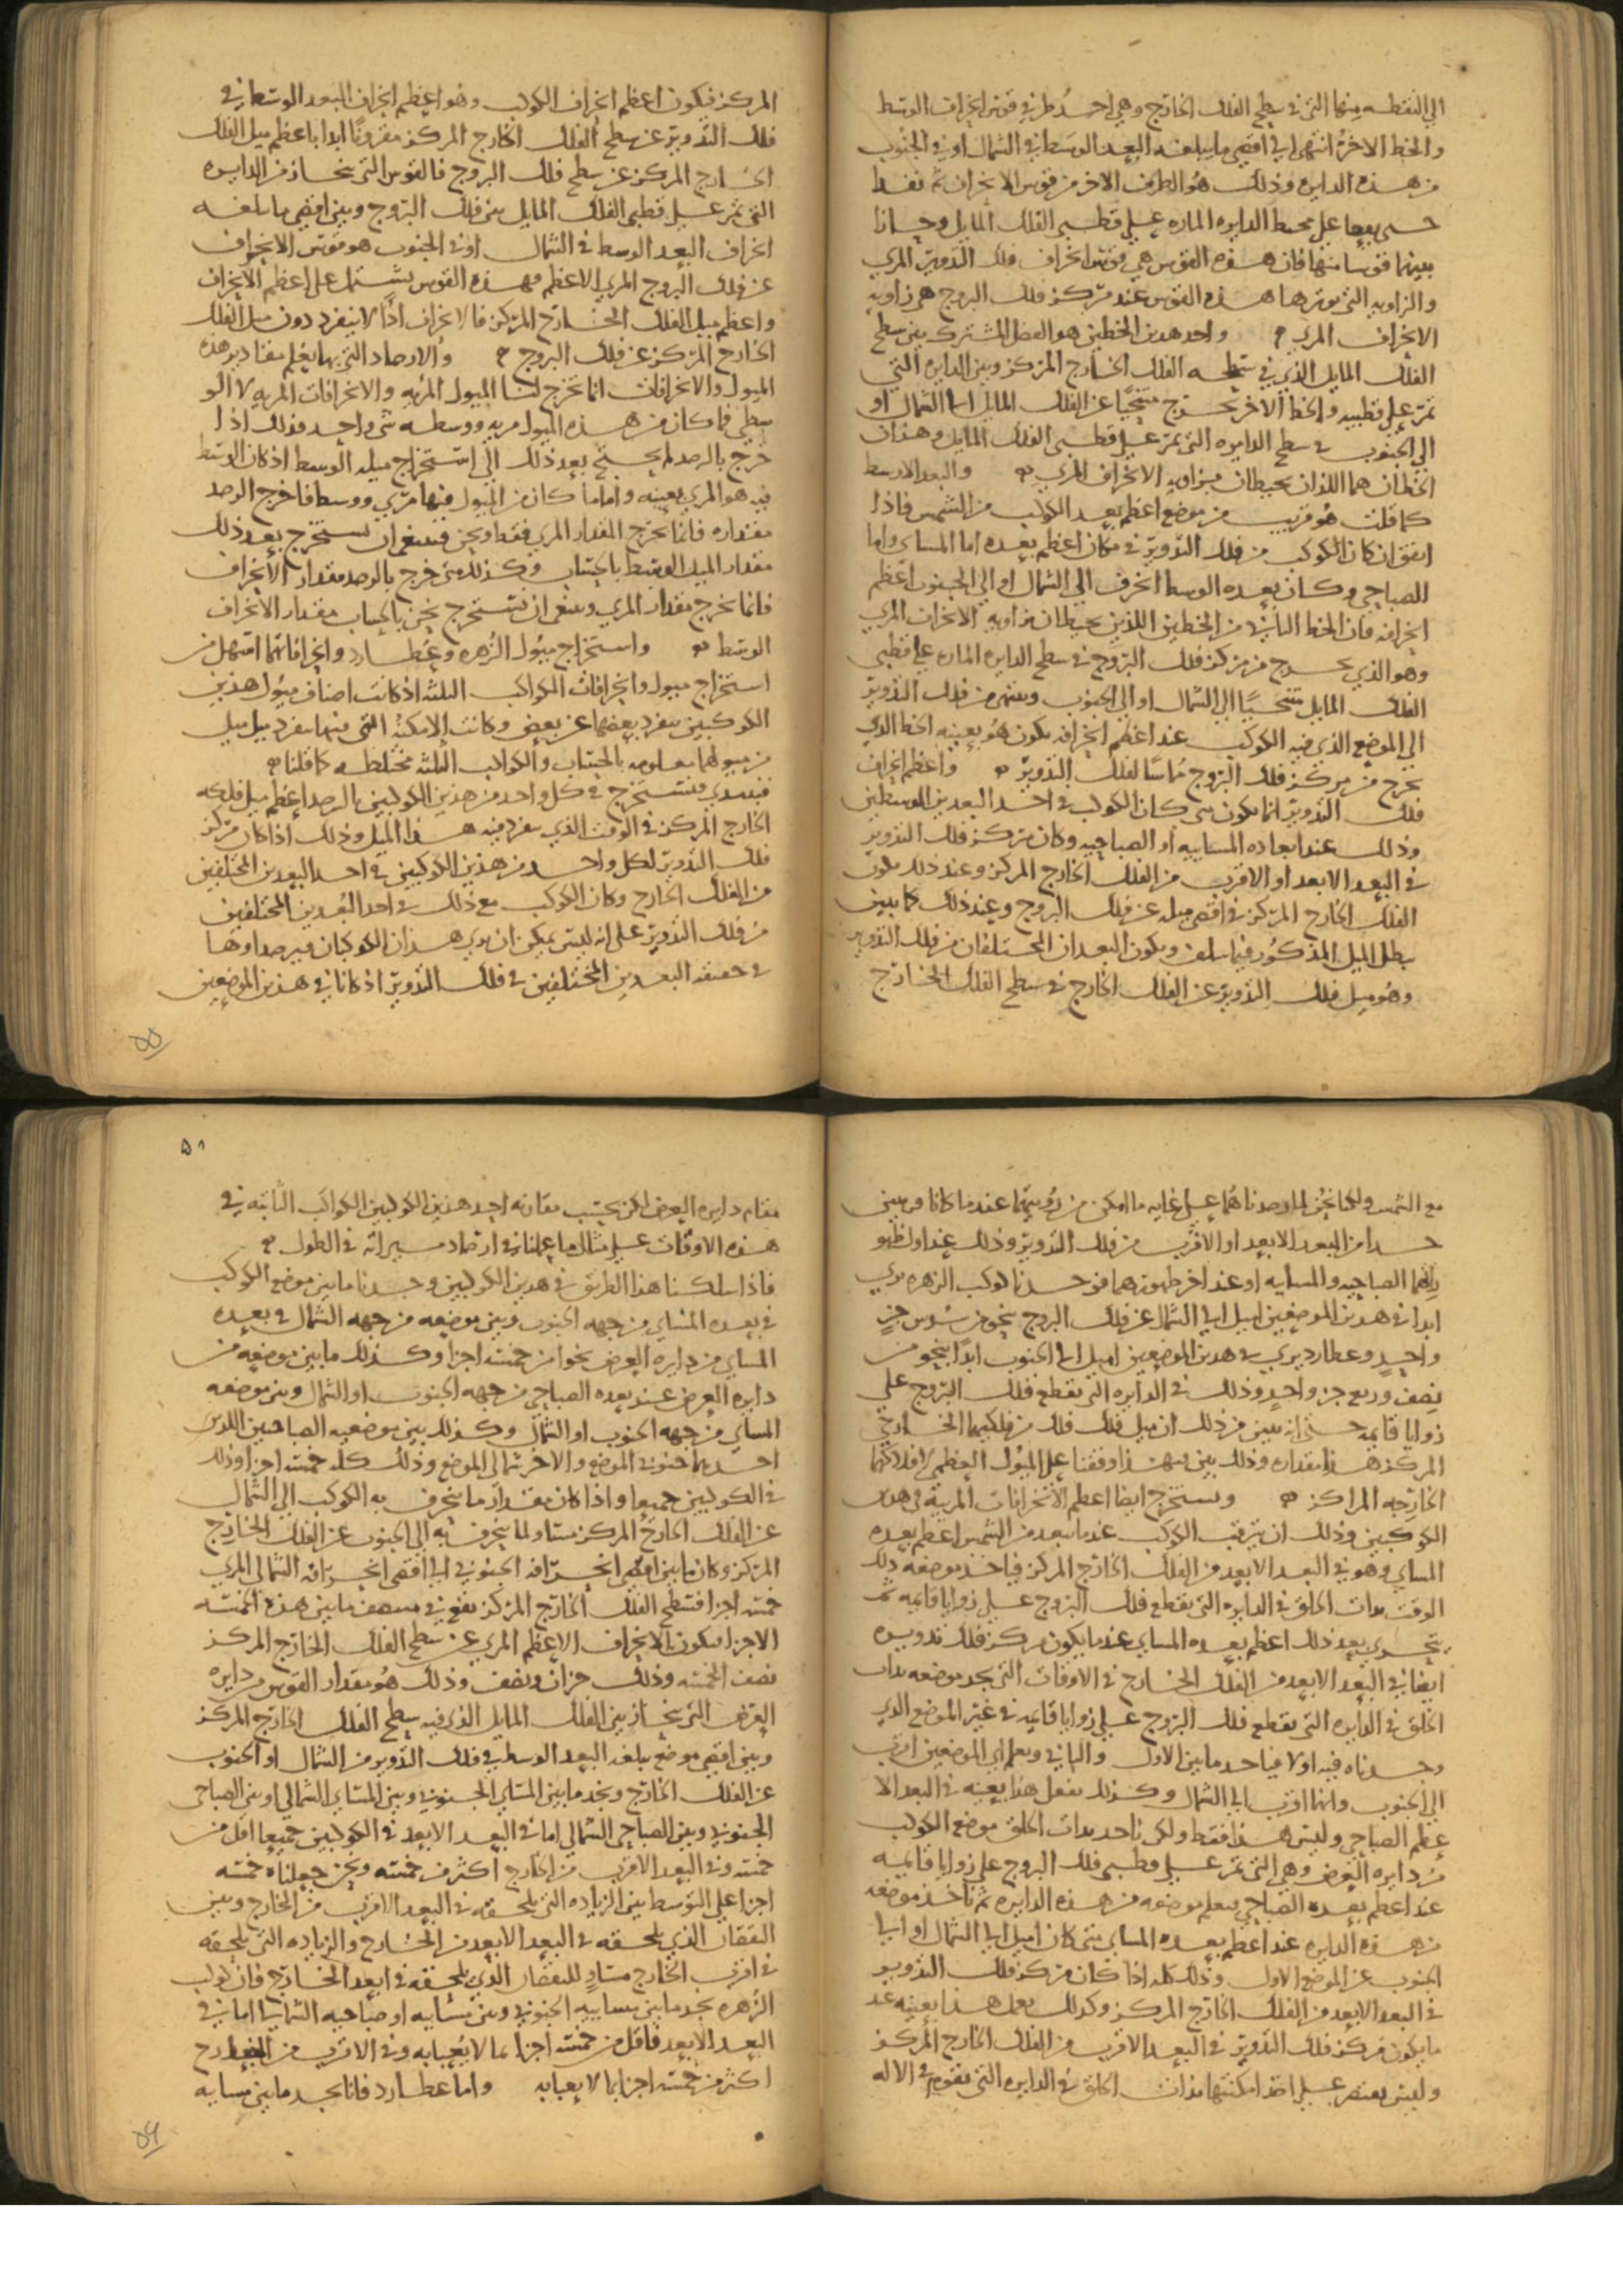 الي النقطه منهما التي في سطح الفلك الخارج وهي احد طرفي قوس انحراف الوسط
والخط الاخر انتهي الي اقصي ما يبلغه البعد الوسط في الشمال او في الجنوب
من هذه الدايره وذلك هو الطرف الاخر من قوس الانحراف ثم نفذا
حتي يقعا علي محيط الدايره الماره علي قطبي الفلك المايل وحازا
بينهما قوسا منها فان هذه القوس هي قوس انحراف فلك التدوير المري
والزاويه التي يوترها هذه القوس عند مركز فلك البروج هي زاويه
الانحراف المري واحد هذين الخطين هو الفصل المشترك بين سطح
الفلك المايل الذي في سطحه الفلك الخارج المركز وبين الدايره التي
تمر علي قطبيه والخط الاخر يخرج متنحيا عن الفلك المايل اما الشمال او
الي الجنوب في سطح الدايره التي تمر علي قطبي الفلك المايل وهذان
الخطان هما اللذان يحيطان بزاويه الانحراف المري والبعد الاوسط
كما قلت هو قريب من موضع اعظم بعد الكوكب من الشمس فاذا
اتفق ان كان الكوكب من فلك التدوير في مكان اعظم بعده اما المسايي واما
الصباحي وكان بعده الوسط انحرف الي الشمال او الي الجنوب اعظم
انحرافه فان الخط الثاني من الخطين اللذين يحيطان بزاويه الانحراف المري
وهو الذي يخرج من مركز فلك البروج في سطح الدايره الماره علي قطبي
الفلك المايل متنحيا الي الشمال او الي الجنوب وينتهي من فلك التدوير
الي الموضع الذي فيه الكوكب عند اعظم انحرافه يكون هو بعينه الخط الذي
يخرج من مركز فلك البروج مماسا لفلك التدوير واعظم انحراف
فلك التدوير انما يكون متي كان الكوكب في احد البعدين الوسطين
وذلك عند ابعاده المساييه او الصباحيه وكان مركز فلك التدوير
في البعد الابعد او الاقرب من الفلك الخارج المركز وعند ذلك يكون
الفلك الخارج المركز في اقصي ميله عن فلك البروج وعند ذلك كما بينا
يبطل الميل المذكور فيما سلف ويكون البعدان المختلفان من فلك التدوير
وهو ميل فلك التدوير عن الفلك الخارج في سطح الفلك الخارج
المركز فيكون اعظم انحراف الكوكب وهو اعظم انحراف البعد الوسط في
فلك التدوير عن سطح الفلك الخارج المركز مقرونا ابدا باعظم ميل الفلك
الخارج المركز عن سطح فلك البروج فالقوس التي تنحاز من الدايره
التي تمر علي قطبي الفلك المايل بين فلك البروج وبين اقصي ما يبلغه
انحراف البعد الوسط في الشمال او في الجنوب هو قوس الانحراف
عن فلك البروج المري الاعظم فهذه القوس تشتمل علي اعظم الانحراف
واعظم ميل الفلك الخارج المركز فالانحراف اذا لا ينفرد دون ميل الفلك
الخارج المركز عن فلك البروج والارصاد التي بها يعلم مقادير هذه
الميول والانحرافات انما تخرج لنا الميول المريه والانحرافات المريه لا الو
سطي فما كان من هذه الميول مريه ووسطه شي واحد فذلك اذا
خرج بالرصد لم يحتج بعد ذلك الي استخراج ميله الوسط اذ كان الوسط
فيه هو المري بعينه واما ما كان من الميول فيها مري ووسط فاخرج الرصد
مقداره فانما يخرج المقدار المري فقط ونحن فينبغي ان نستخرج بعد ذلك
مقدار الميل الوسط بالحساب وكذلك متي خرج بالرصد مقدار الانحراف
فانما يخرج مقدار المري وينبغي ان نستخرج نحن بالحساب مقدار الانحراف
الوسط واستخراج ميول الزهره وعطارد وانحرافاتهما اسهل من
استخراج ميول وانحرافات الكواكب الثلثه اذ كانت اصناف ميول هذين
الكوكبين ينفرد بعضها عن بعض وكانت الامكنه التي فيها ينفرد ميل ميل
من ميولهما معلومه بالحساب والكواكب الثلثه مختلطه كما قلنا
فنبتدي فنستخرج في كل واحد من هذين الكوكبين بالرصد اعظم ميل فلكه
الخارج المركز في الوقت الذي ينفرد فيه هذا الميل وذلك اذا كان مركز
فلك التدوير لكل واحد من هذين الكوكبين في احد البعدين المختلفين
من الفلك الخارج وكان الكوكب مع ذلك في احد البعدين المختلفين
من فلك التدوير علي انه ليس يمكن ان يري هذان الكوكبان فيرصدا وهما
في حقيقه البعدين المختلفين في فلك التدوير اذ كانا في هذين الموضعين
٥٥
مع الشمس ولكنا نحن لما رصدناهما علي غايه ما امكن من رويتهما عندما كانا قريبين
جدا من البعد الابعد او الاقرب من فلك التدوير وذلك عند اول ظهو
رهما الصباحيه والمساييه او عند اخر ظهورهما فوجدنا كوكب الزهره يري
ابدا في هذين الموضعين اميل الي الشمال عن فلك البروج بنحو من سدس جزٍ
واحدٍ وعطارد يري في هذين الموضعين اميل الي الجنوب ابدا بنحو من
نصف وربع جز واحدٍ وذلك في الدايره التي تقطع فلك البروج علي
زوايا قايمه حتي انه يتبين من ذلك ان ميل فلك فلك من فلكيهما الخارجي
المركز هذا مقداره وذلك بين فبهذا وقفنا علي الميول العظمي لافلاكهما
الخارجه المراكز ونستخرج ايضا اعظم الانحرافات المريه في هذين
الكوكبين وذلك ان نترقب الكوكب عندما يبعد من الشمس اعظم بعده
المسايي وهو في البعد الابعد من الفلك الخارج المركز فياخذ موضعه ذلك
الوقت بذات الحلق في الدايره التي تقطع فلك البروج علي زوايا قايمه ثم
يتحري بعد ذلك اعظم بعده المسايي عندما يكون مركز فلك تدويره
ايضا في البعد الابعد من الفلك الخارج في الاوقات التي يجد موضعه بذات
الحلق في الدايره التي تقطع فلك البروج علي زوايا قايمه في غير الموضع الذي
وجدناه فيه اولا فياخذ ما بين الاول والثاني ويعلم اي الموضعين اقرب
الي الجنوب وايهما اقرب الي الشمال وكذلك نفعل هذا بعينه في البعد الا
عظم الصباحي وليس هذا فقط ولكن ناخذ بذات الحلق موضع الكوكب
من دايره العرض وهي التي تمر علي قطبي فلك البروج علي زوايا قايمه
عند اعظم بعده الصباحي فنعلم موضعه من هذه الدايره ثم ناخذ موضعه
من هذه الدايره عند اعظم بعده المسايي متي كان اميل الي الشمال او الي
الجنوب عن الموضع الاول وذلك كله اذا كان مركز فلك التدوير
في البعد الابعد من الفلك الخارج المركز وكذلك نعمل هذا بعينه عند
ما يكون مركز فلك التدوير في البعد الاقرب من الفلك الخارج المركز
وليس نقتصر علي اخذ امكنتها بذات الحلق في الدايره التي تقوم في الاله
٥١
مقام دايره العرض لكن نحتسب مقارنه احد هذين الكوكبين الكواكب الثابته في
هذه الاوقات علي مثال ما عملنا في ارصاد مسيراته في الطول
فاذا سلكنا هذا الطريق في هذين الكوكبين وجدنا ما بين موضع الكوكب
في بعده المسايي من جهه الجنوب وبين موضعه من جهه الشمال في بعده
المسايي من دايره العرض نحوا من خمسه اجزا وكذلك ما بين موضعه من
دايره العرض عند بعده الصباحي من جهه الجنوب او الشمال وبين موضعه
المسايي من جهه الجنوب او الشمال وكذلك بين موضعيه الصباحيين اللذين
احدهما جنوبي الموضع والاخر شمالي الموضع وذلك كله خمسه اجزا وذلك
في الكوكبين جميعا واذا كان مقدار ما ينحرف به الكوكب الي الشمال
عن الفلك الخارج المركز مساو لما ينحرف به الي الجنوب عن الفلك الخارج
المركز وكان ما بين اقصي انحرافه الجنوبي الي اقصي انحرافه الشمالي المري
خمسه اجزا فسطح الفلك الخارج المركز يقع في منتصف ما بين هذه الخمسه
الاجزا فيكون الانحراف الاعظم المري عن سطح الفلك الخارج المركز
نصف الخمسه وذلك جزان ونصف وذلك هو مقدار القوس من دايره
العرض التي تنحاز بين الفلك المايل الذي فيه سطح الفلك الخارج المركز
وبين اقصي موضع يبلغه البعد الوسط في فلك التدوير من الشمال او الجنوب
عن الفلك الخارج ونجد ما بين المسايي الجنوبي وبين المسايي الشمالي او بين الصباحي
الجنوبي وبين الصباحي الشمالي اما في البعد الابعد في الكوكبين جميعا اقل من
خمسه وفي البعد الاقرب من الخارج اكثر من خمسه ونحن جعلناه خمسه
اجزا علي التوسط بين الزياده التي تلحقه في البعد الاقرب من الخارج وبين
النقصان الذي يلحقه في البعد الابعد من الخارج والزياده التي تلحقه
في اقرب الخارج مساوٍ للنقصان الذي يلحقه في ابعد الخارج فان كوكب
الزهره نجد ما بين مساييه الجنوبي وبين مساييه او صباحيه الشمالي اما في
البعد الابعد فاقل من خمسه اجزا بما لا يعبا به وفي الاقرب من الخارج
اكثر من خمسه اجزا بما لا يعبا به واما عطارد فانا نجد ما بين مساييه
٥٦